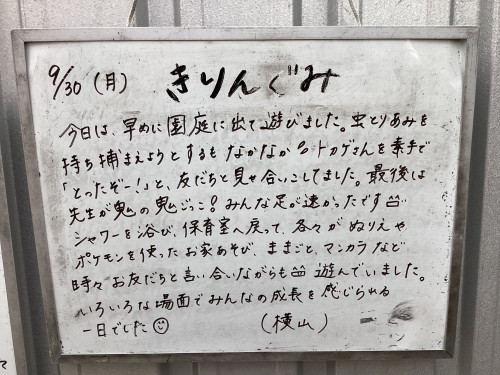 9/30(月) きりんぐみ
今日は、早めに園庭に出て遊びました。虫とりあみを
持ち捕まえようとするもなかなか💦トカゲさんを素手で
「とったぞー!」と、友だちと見せ合いこしてました。最後は
先生が鬼の鬼ごっこ!みんな足が速かったです
シャワーを浴び、保育室へ戻って、各々がぬりえや
ポケモンを使ったお家あそび、ままごと、マンカラなど
時々お友だちと言い合いながらも 遊んでいました。
いろいろな場面でみんなの成長を感じられる
一日でした☺ (横山)